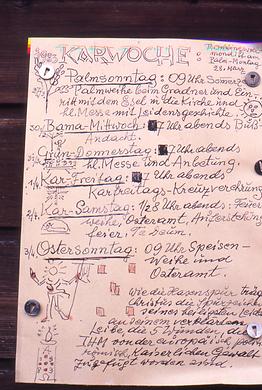 1983 KARWOCHE:
Palmsonntag: 09 Uhr Sommerz
Palmweihe beim Gradner und Ein-
ritt mit dem Esel in die Kirche und
hl. Messe mit Leidensgeschichte.
Bama-Mittwoch: 7 Uhr abends Buß-
Andacht.
Grün-Donnerstag: 7 Uhr abends
hl. Messe und Anbetung.
Kar-Freitag: 7 Uhr abends
Karfreitags-Kreuzverehrung
2/4. Kar-Samstag: ½8 Uhr abends: Feuer
weihe, Osteramt, Auferstehungs
feier, Te deum.
3/4. Ostersonntag: 09 Uhr Speisen-
Weihe und
Osteramt.
wie die Hasenspur trägt
Christus die
seines heiligsten Leides
an seinem verklärten
Leibe, die 5 Wunden, die
IHM von der europäisch,
römisch, Kaiserlichen Gewalt
zugefügt worden